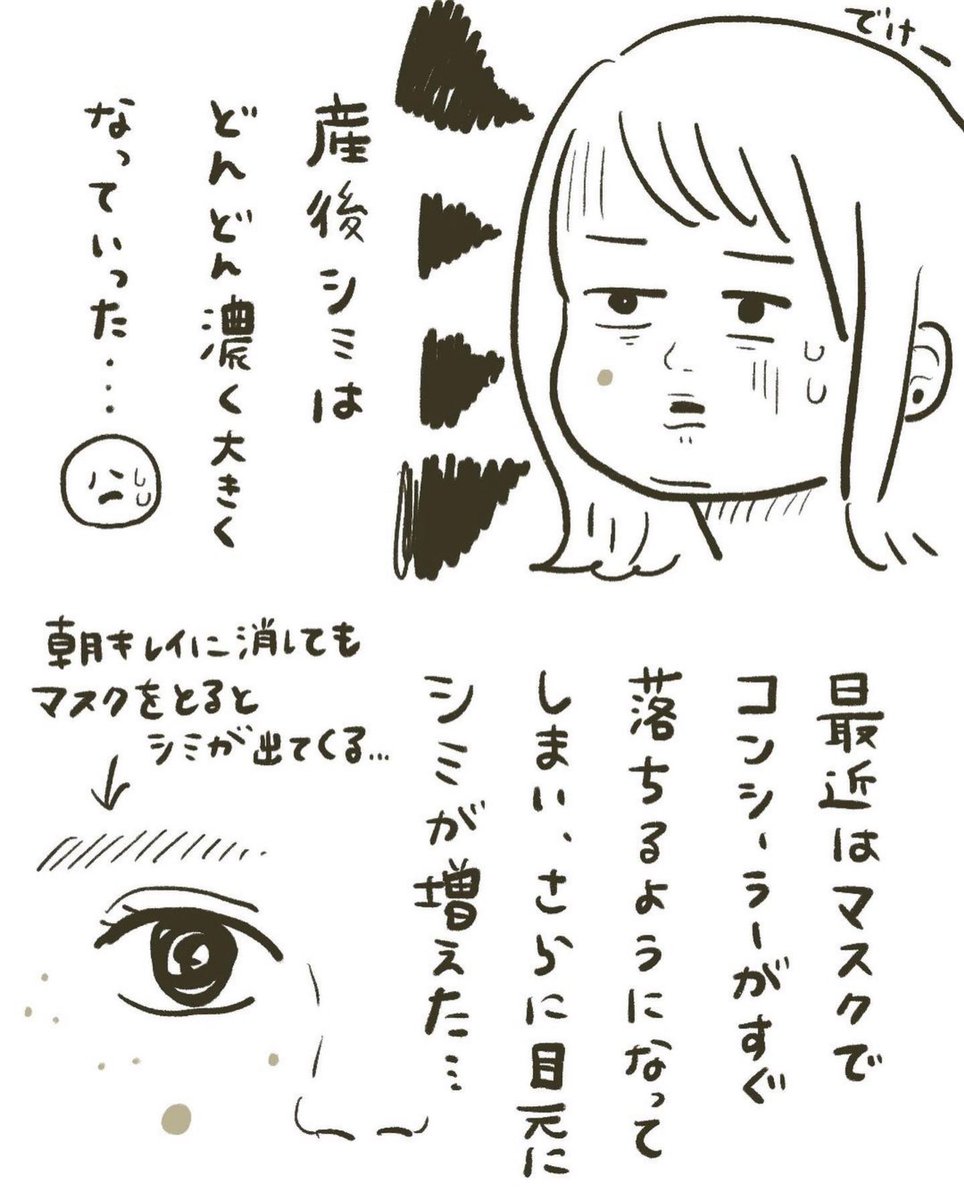 でけー
産後シミは
どんどん濃く大きく
なっていった....
最近はマスクで
コンシーラーがすぐ
落ちるようになって
しまい、さらに目元に
シミが増えた...
朝キレイに消しても
マスクをとると
シミが出てくる...